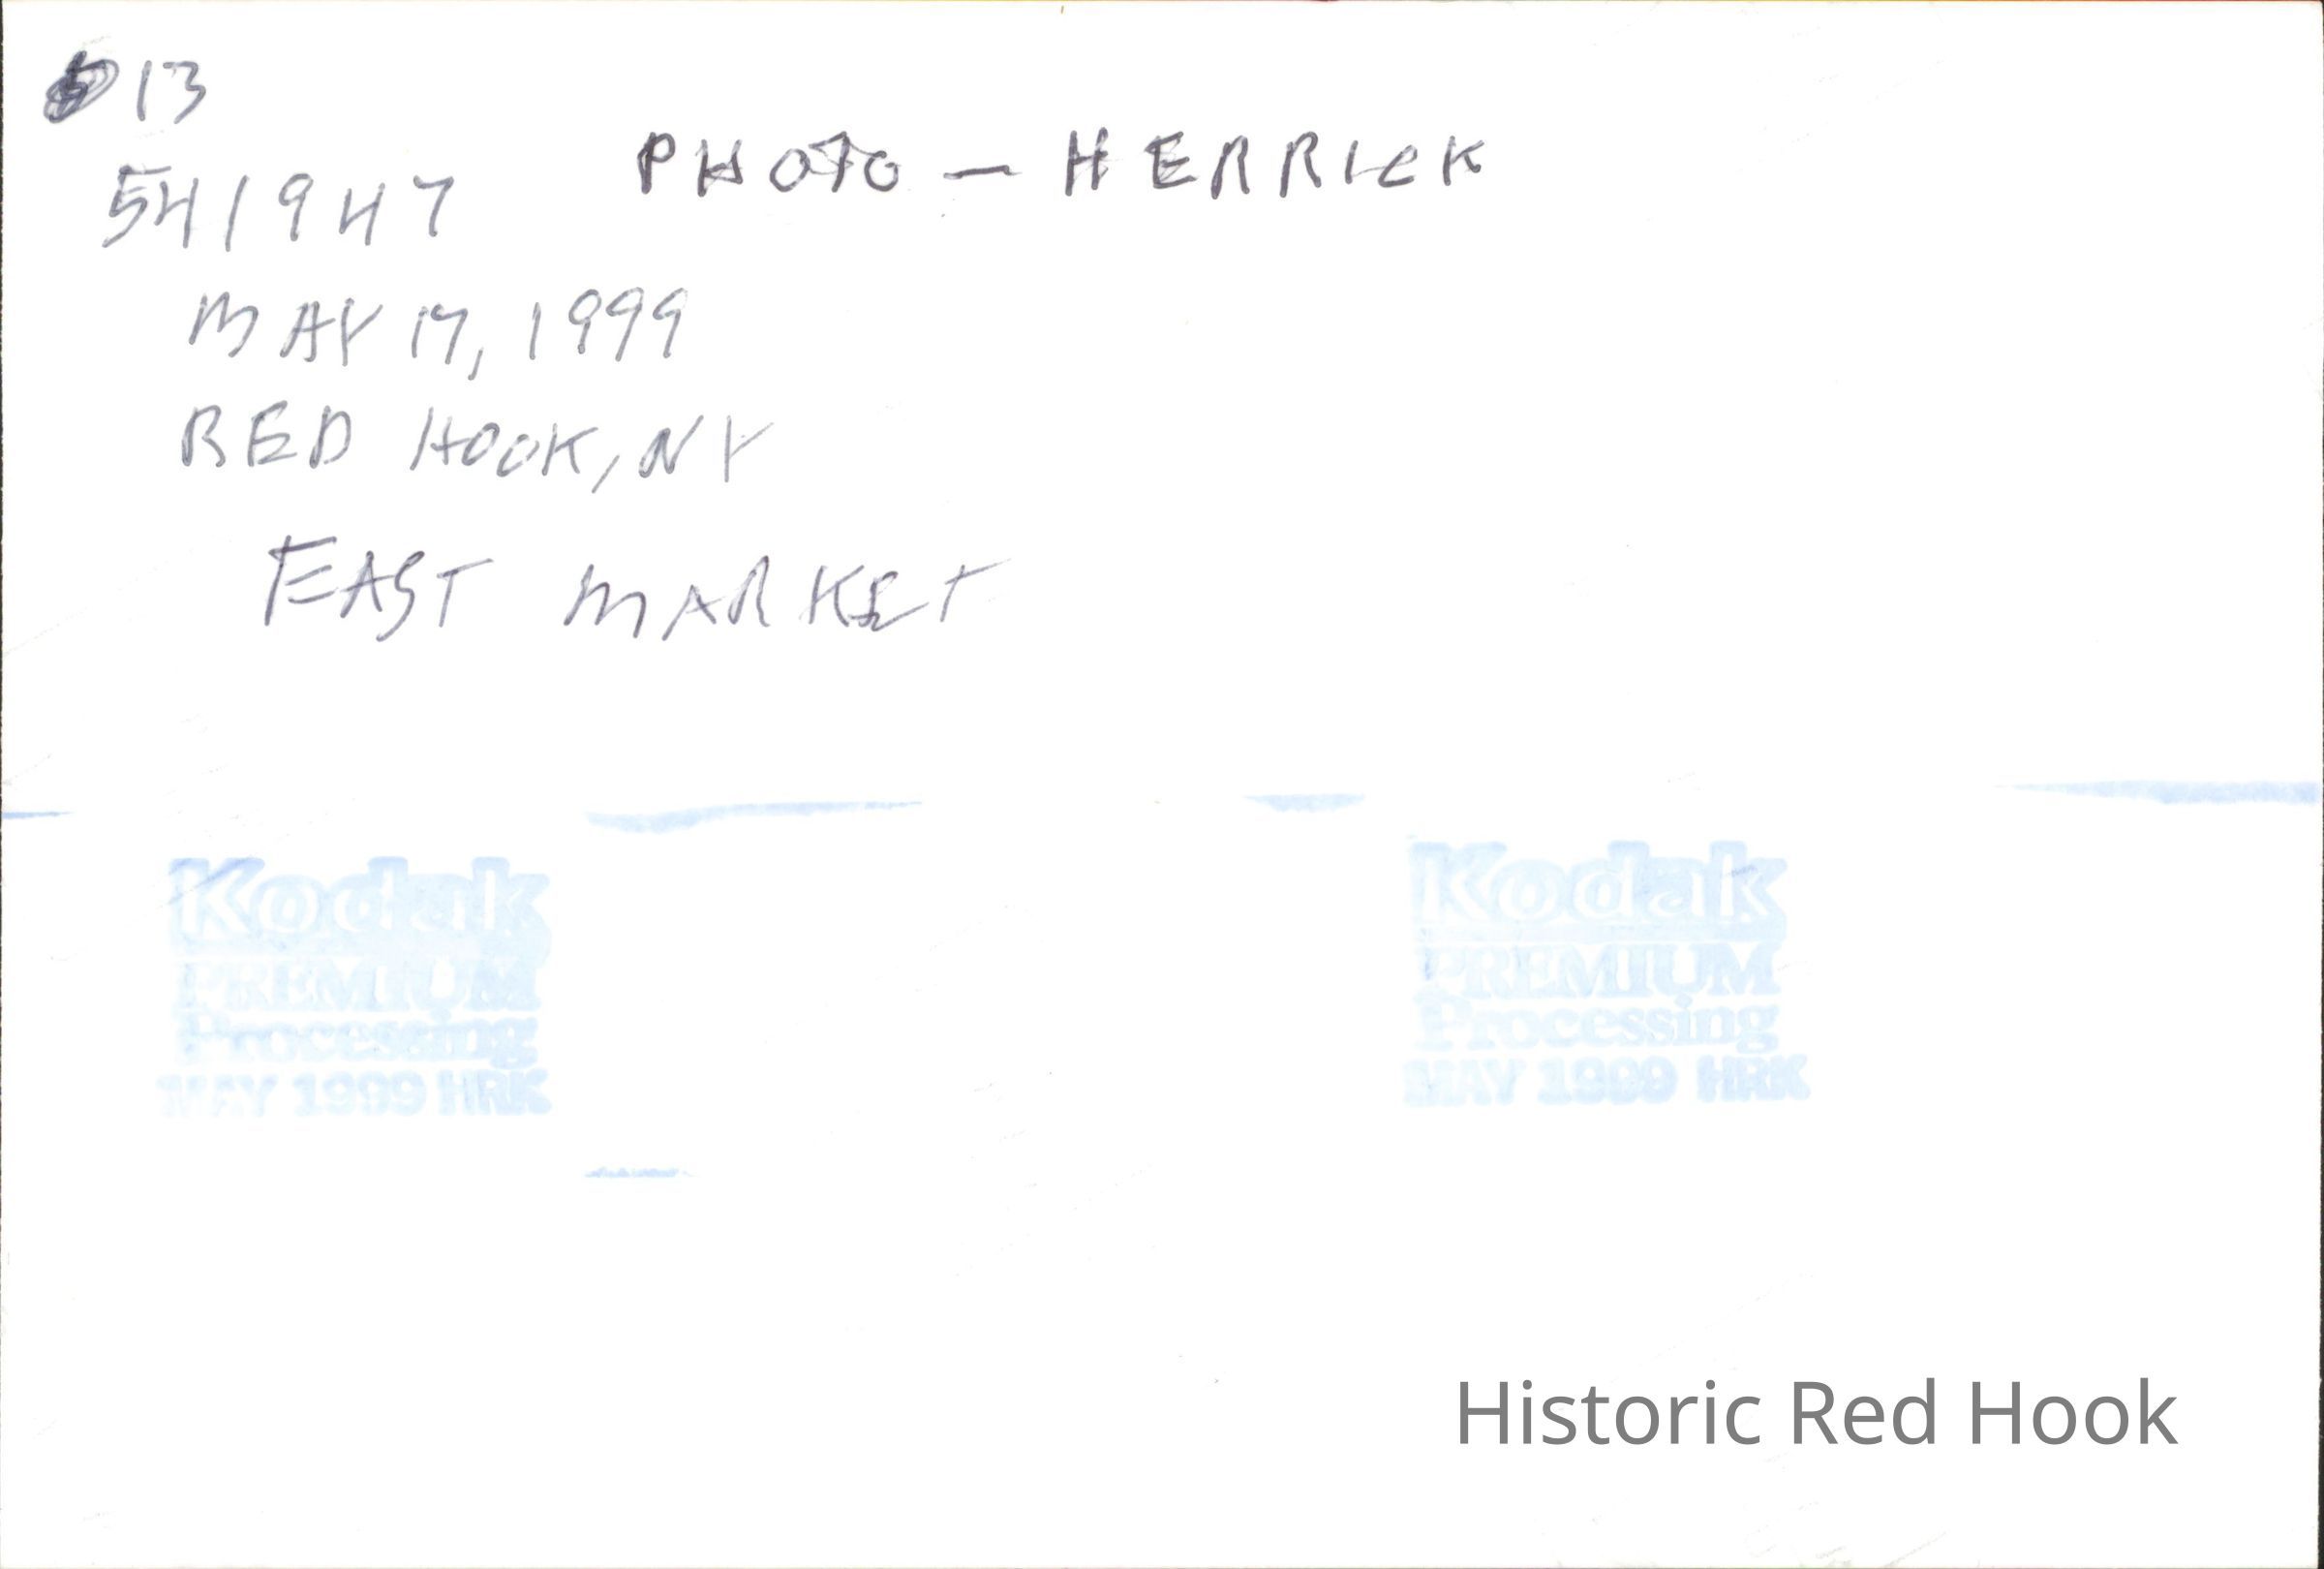 13
541947
PHOTO — HERRICK
MAY 17, 1999
RED HOOK, NY
EAST MARKET
Kodak
PREMIUM
Processing
MAY 1999 HRK
Kodak
PREMIUM
Processing
MAY 1999 HRK
Historic Red Hook